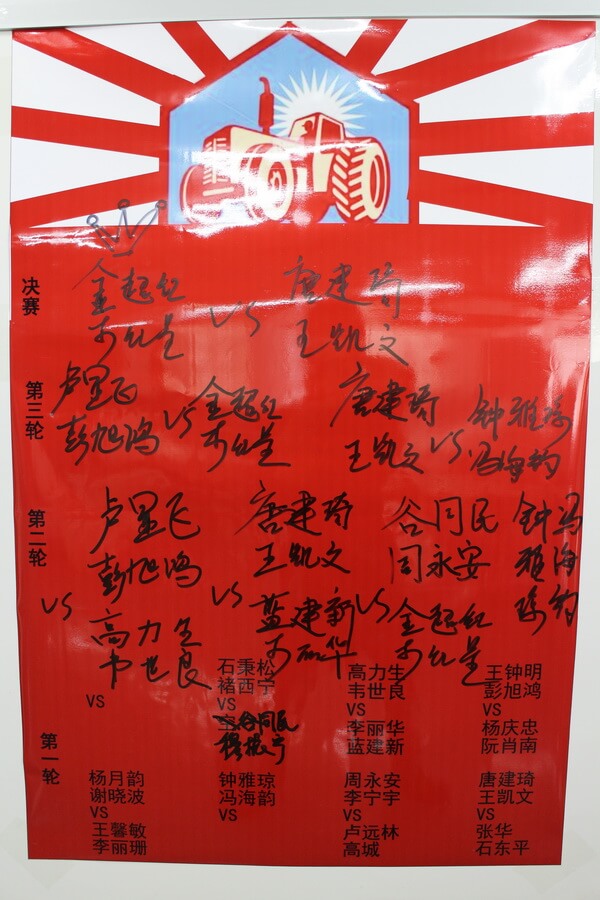 决赛
金超红 VS 唐建琦
王凯文
第三轮
卢显飞 VS 金超红 唐建琦 VS 钟雅琼
彭旭鸿 王凯文 冯海韵
第二轮
卢显飞 唐建琦 谷同民 钟雅琼 冯海韵
彭旭鸿 王凯文 周永安
VS VS VS
高力生 蓝建新 金超红
韦世良
第一轮
VS
石秉松
褚西宁
VS
谷同民
高力生
韦世良
VS
李丽华
蓝建新
王钟明
彭旭鸿
VS
杨庆忠
阮肖南
杨月韵
谢晓波
VS
王馨敏
李丽珊
钟雅琼
冯海韵
VS
周永安
李宁宇
VS
卢远林
高城
唐建琦
王凯文
VS
张华
石东平